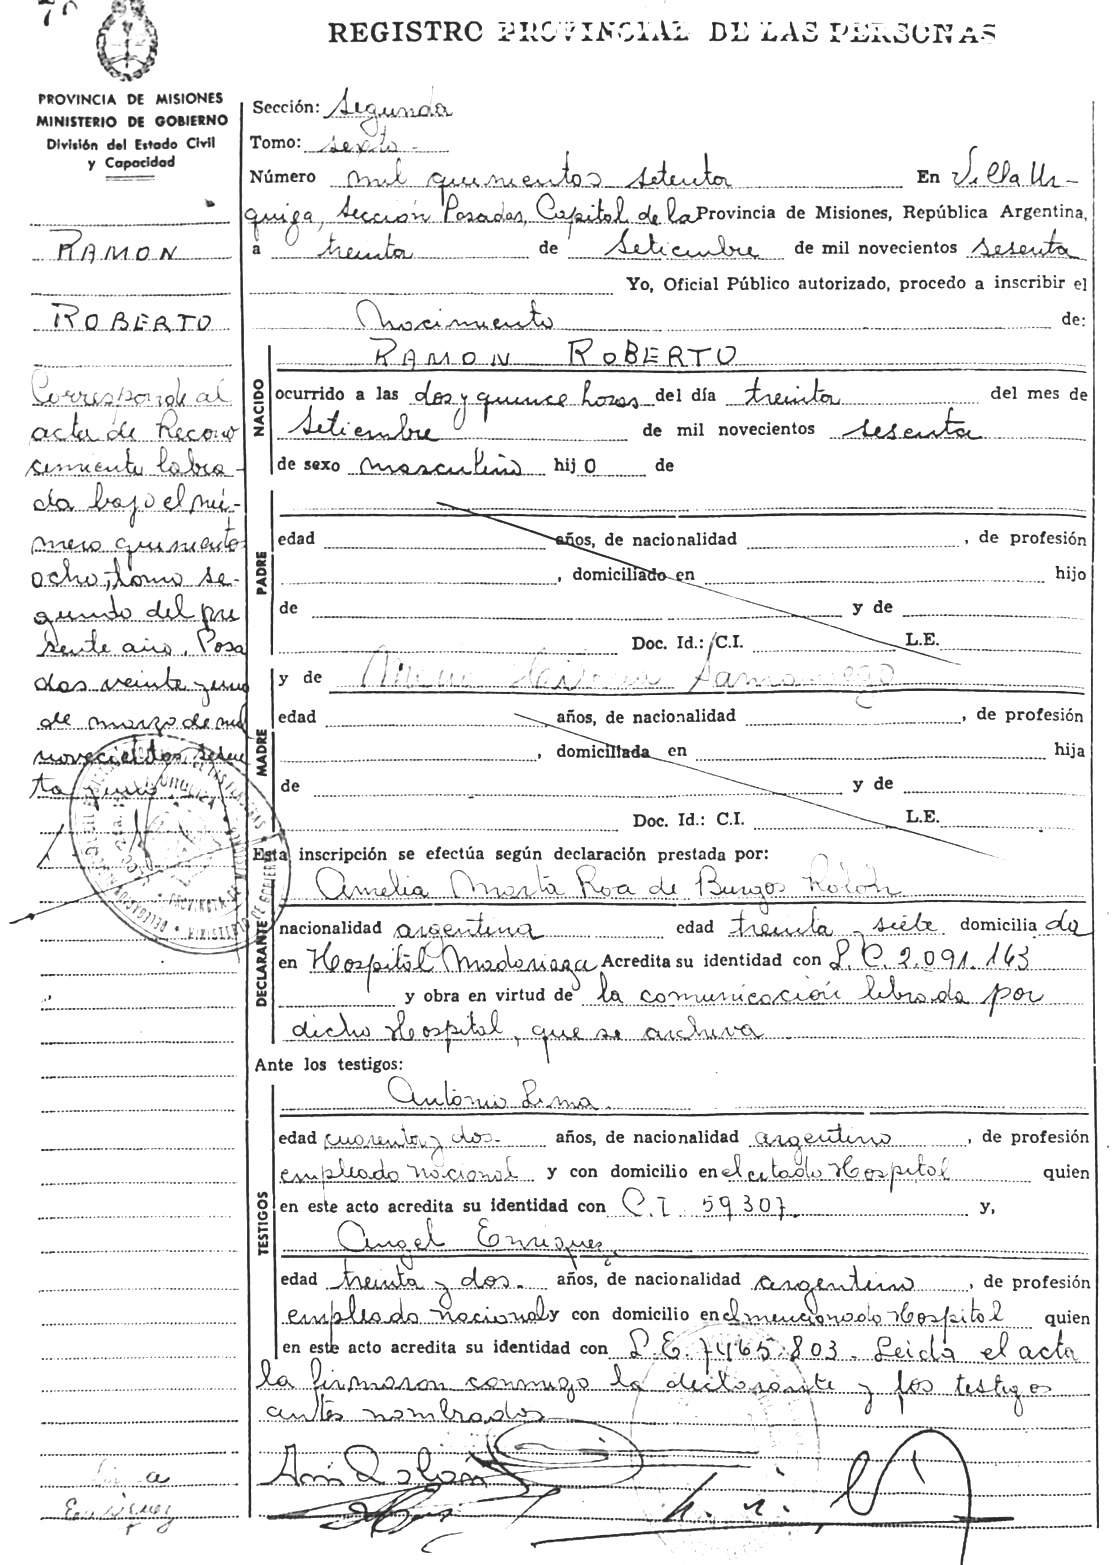 REGISTRO PROVINCIAL DE LAS PERSONAS
PROVINCIA DE MISIONES
MINISTERIO DE GOBIERNO
División del Estado Civil
y Capacidad
RAMON
ROBERTO
Corresponde al
acta de Recono
cimiento labra-
da bajo el nú-
mero quinientos
ocho, tomo se-
gundo del pre
sente año. Posa
das veinte y uno
de marzo de mil
novecientos sesen
ta y uno.
Enriquez
Sección: Segunda
Tomo: sexto
Número mil quinientos setenta En Villa Ur-
quiza, Sección Posadas, Capital de la Provincia de Misiones, República Argentina,
a treinta de Setiembre de mil novecientos sesenta
Yo, Oficial Público autorizado, procedo a inscribir el
Nacimiento de:
NACIDO
RAMON ROBERTO
ocurrido a las dos y quince horas del día treinta del mes de
Setiembre de mil novecientos sesenta
de sexo masculino hijo de
PADRE
edad años, de nacionalidad , de profesión
, domiciliado en hijo
de y de
Doc. Id.: C.I. L.E.
y de Samaniego
MADRE
edad años, de nacionalidad , de profesión
, domiciliada en hija
de y de
Doc. Id.: C.I. L.E.
Esta inscripción se efectúa según declaración prestada por:
DECLARANTE
Amelia Marta Roa de Burgos Rolón
nacionalidad argentina edad treinta y siete domicilia da
en Hospital Madariaga Acredita su identidad con L.C. 2.091.163
y obra en virtud de la comunicación librada por
dicho Hospital, que se archiva
Ante los testigos:
TESTIGOS
Antonio Lima.
edad cuarenta y dos- años, de nacionalidad argentino , de profesión
empleado nacional y con domicilio en el citado Hospital quien
en este acto acredita su identidad con C.I. 59307. y,
Angel Enriquez
edad treinta y dos- años, de nacionalidad argentino , de profesión
empleado nacional y con domicilio en el mencionado Hospital quien
en este acto acredita su identidad con L.E. 7465.803. Leída el acta
la firmaron conmigo la declarante y los testigos
antes nombrados